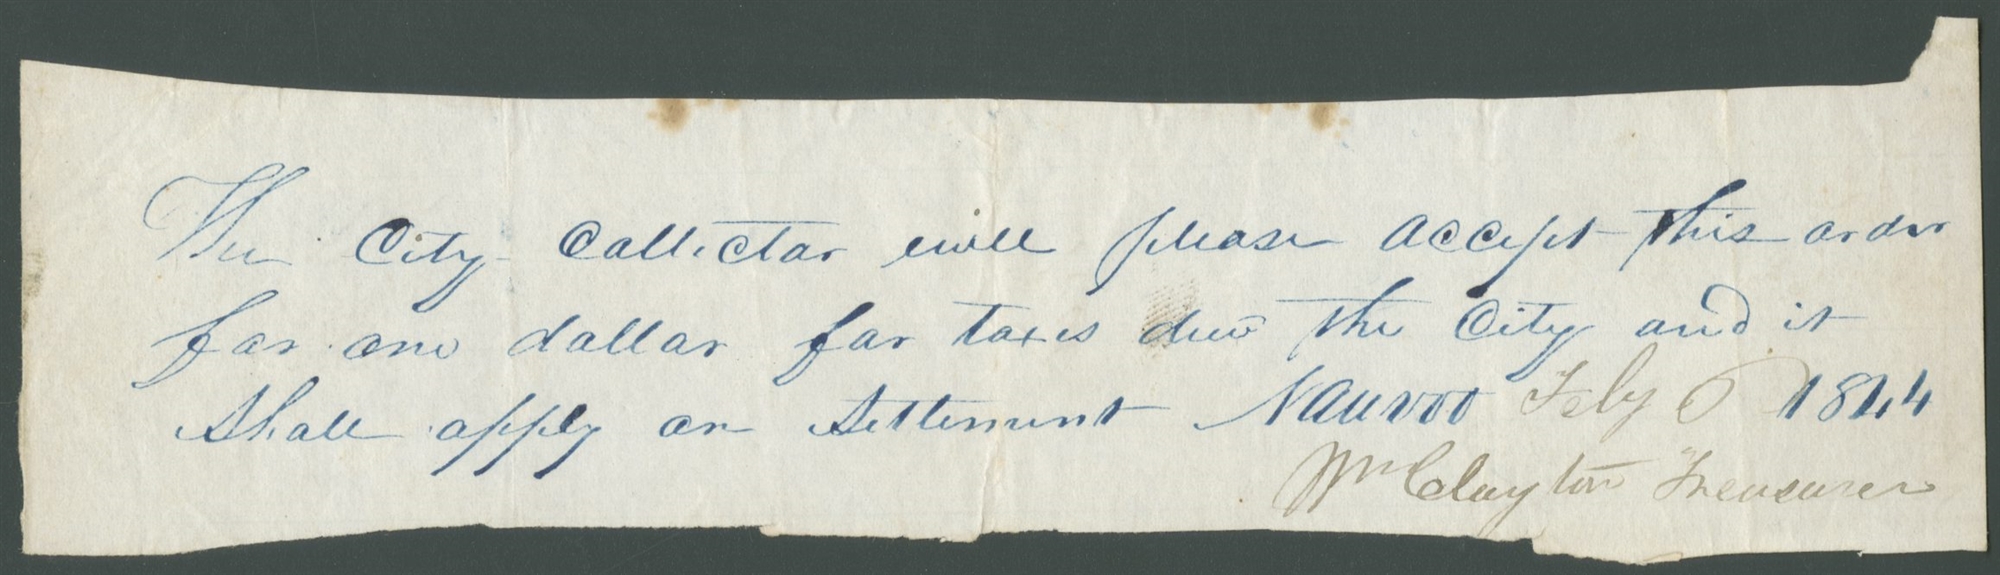 The City Collector will please accept this order
for one dollar for taxes due the City and it
shall apply on settlement Nauvoo Feby 6 1844
Wm Clayton Treasurer